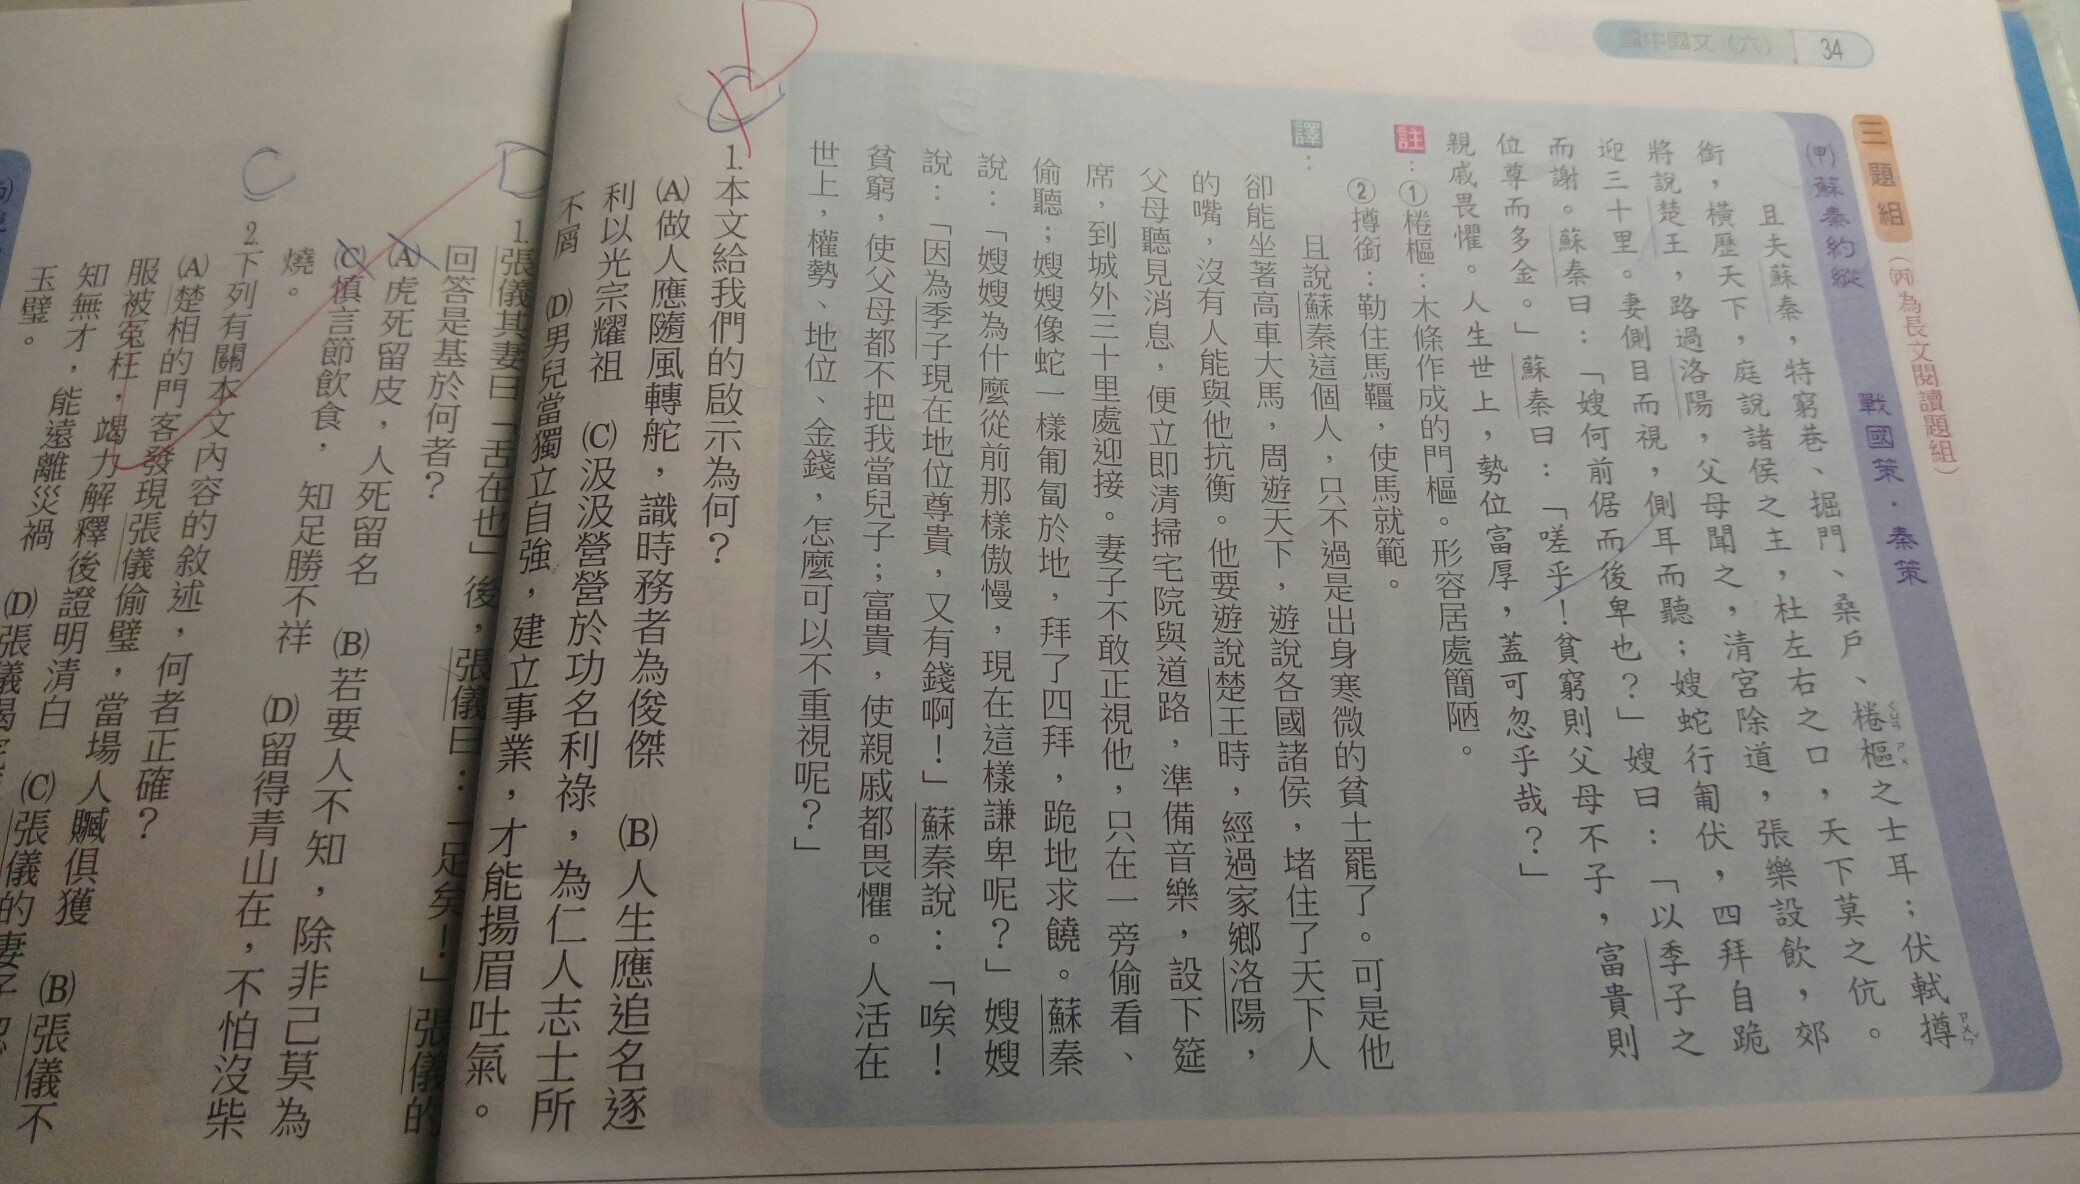 國中國文(六) 34
三 題組 (㈛為長文閱讀題組)
㈙蘇秦約縱 戰國策·秦策
且夫蘇秦,特窮巷、掘門、桑戶、棬樞之士耳;伏軾撙
銜,橫歷天下,庭說諸侯之主,杜左右之口,天下莫之伉。
將說楚王,路過洛陽,父母聞之,清宮除道,張樂設飲,郊
迎三十里。妻側目而視,側耳而聽;嫂蛇行匍伏,四拜自跪
而謝。蘇秦曰:「嫂何前倨而後卑也?」嫂曰:「以季子之
位尊而多金。」蘇秦曰:「嗟乎!貧窮則父母不子,富貴則
親戚畏懼。人生世上,勢位富厚,蓋可忽乎哉?」
註:①棬樞:木條作成的門樞。形容居處簡陋。
②撙銜:勒住馬韁,使馬就範。
譯: 且說蘇秦這個人,只不過是出身寒微的貧士罷了。可是他
卻能坐著高車大馬,周遊天下,遊說各國諸侯,堵住了天下人
的嘴,沒有人能與他抗衡。他要遊說楚王時,經過家鄉洛陽,
父母聽見消息,便立即清掃宅院與道路,準備音樂,設下筵
席,到城外三十里處迎接。妻子不敢正視他,只在一旁偷看、
偷聽;嫂嫂像蛇一樣匍匐於地,拜了四拜,跪地求饒。蘇秦
說:「嫂嫂為什麼從前那樣傲慢,現在這樣謙卑呢?」嫂嫂
說:「因為季子現在地位尊貴,又有錢啊!」蘇秦說:「唉!
貧窮,使父母都不把我當兒子;富貴,使親戚都畏懼。人活在
世上,權勢、地位、金錢,怎麼可以不重視呢?」
D
C
1.本文給我們的啟示為何?
(A)做人應隨風轉舵,識時務者為俊傑 (B)人生應追名逐
利以光宗耀祖 (C)汲汲營營於功名利祿,為仁人志士所
不屑 (D)男兒當獨立自強,建立事業,才能揚眉吐氣。
D
1.張儀其妻曰「舌在也」後,張儀曰:「足矣!」張儀的
回答是基於何者?
(A)虎死留皮,人死留名 (B)若要人不知,除非己莫為
(C)慎言節飲食,知足勝不祥 (D)留得青山在,不怕沒柴
燒。
C
2.下列有關本文內容的敘述,何者正確?
(A)楚相的門客發現張儀偷璧,當場人贓俱獲 (B)張儀不
服被冤枉,竭力解釋後證明清白 (C)張儀的妻子
知無才,能遠離災禍 (D)張儀
玉璧。